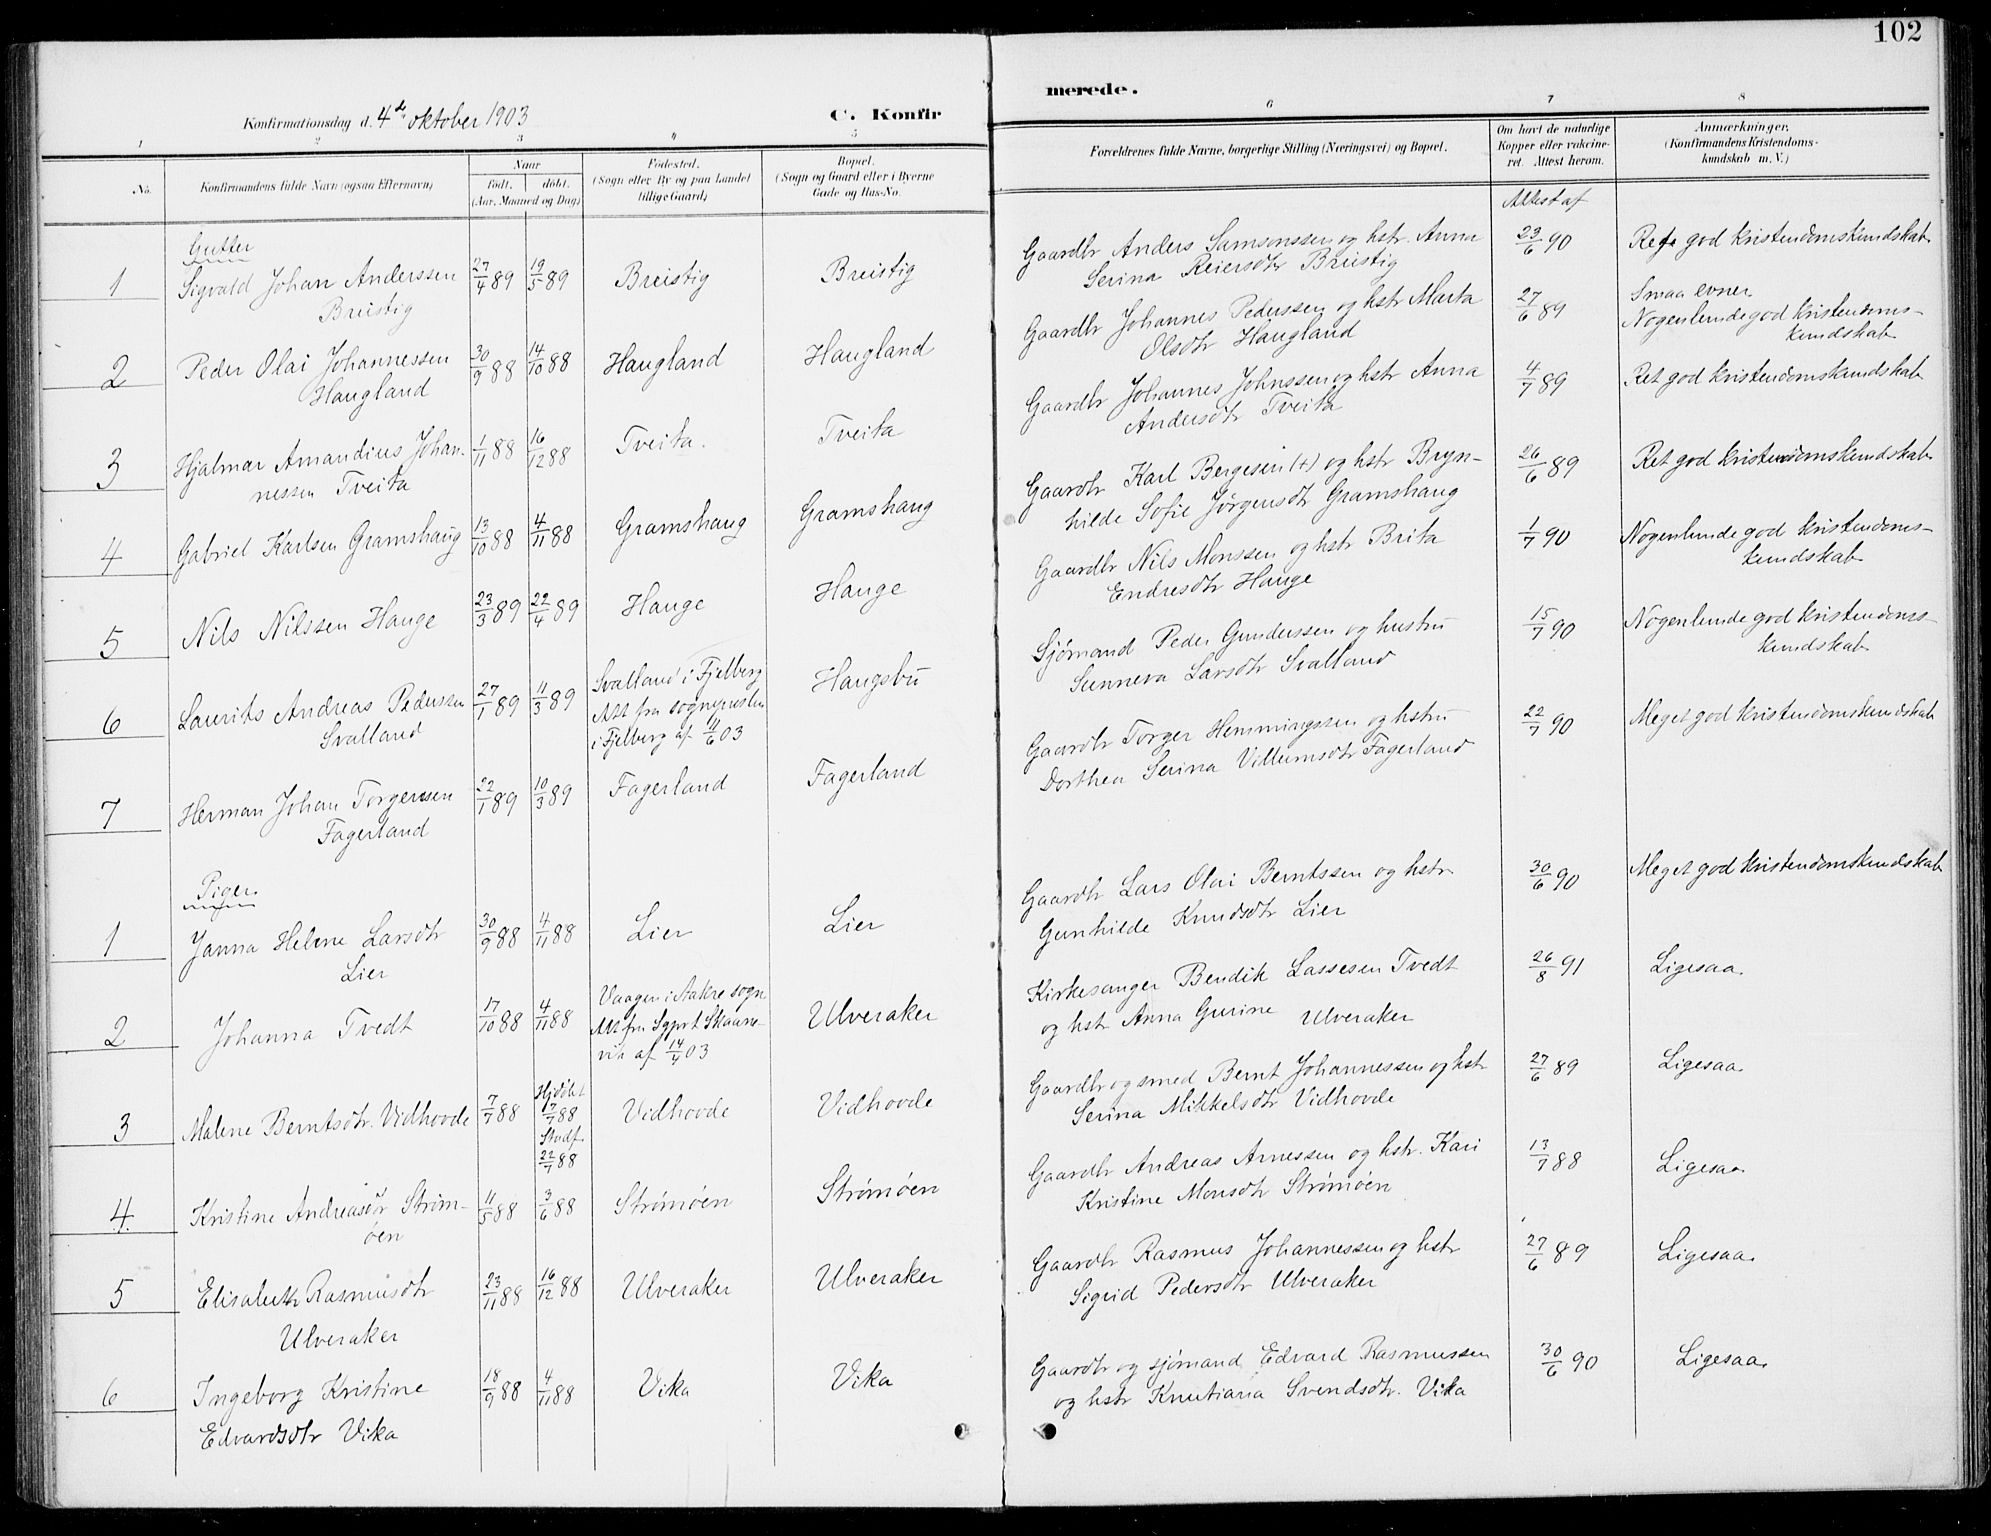 102
Konfirmationsdag d. 4de oktober 1903
C. Konfir
merede.
1 2 3 4 5 6 7 8
No.
Konfirmandens fulde Navn (ogsaa Efternavn)
Naar
født. døbt.
(Aar, Maaned og Dag)
Fødested.
(Sogn eller By og paa Landet
tillige Gaard)
Bopæl.
(Sogn og Gaard eller i Byerne
Gade og Hus-No.
Forældrenes fulde Navne, borgerlige Stilling (Næringsvei) og Bopæl.
Om havt de naturlige
Kopper eller vakcine-
ret. Attest herom.
Anmærkninger.
(Konfirmandens Kristendoms-
kundskab m. V.)
Attest af
Gutter
1 Sigvald Johan Anderssen 27/4 89 19/5 89 Breistig Breistig
Breistig
Gaardbr Anders Samsonssen og hstr. Anna 23/6 90 Ret god kristendomskundskab
Serina Reiersdtr Breistig
2 Peder Olai Johannessen 30/9 88 14/10 88 Haugland Haugland
Haugland
Gaardbr Johannes Pederssen og hstr Marta 27/6 89 Smaa evner
Olsdtr Haugland
Nogenlunde god kristendoms-
kundskab
3 Hjalmar Amandius Johan- 1/11 88 16/12 88 Tveita. Tveita
nessen Tveita
Gaardbr Johannes Johnssen og hstr Anna 4/7 89 Ret god kristendomskundskab
Andersdtr Tveita
4 Gabriel Karlsen Gramshaug 13/10 88 4/11 88 Gramshaug Gramshaug
Gaardbr Karl Bergesen (+) og hstr Bryn- 26/6 89 Ret god kristendomskundskab
hilde Sofie Jørgensdtr Gramshaug
5 Nils Nilssen Hauge 23/3 89 22/4 89 Hauge Hauge
Gaardbr Nils Monssen og hstr Brita 1/7 90 Nogenlunde god kristendoms-
Endresdtr Hauge
kundskab
6 Laurits Andreas Pederssen 27/1 89 11/3 89 Svalland i Fjelberg Haugsbu
Svalland
Att fra sognepresten
i Fjelberg af 11/6 03
Sjømand Peder Gunderssen og hustru 15/7 90 Nogenlunde god kristendoms-
Sunneva Larsdtr Svalland
kundskab
7 Herman Johan Torgersen 22/1 89 10/3 89 Fagerland Fagerland
Fagerland
Gaardbr Torger Hemmingssen og hstru 22/7 90 Meget god kristendomskundskab
Dorthea Serina Villumsdtr Fagerland
Piger.
1 Janna Helene Larsdtr 30/9 88 4/11 88 Lier Lier
Lier
Gaardbr Lars Olai Berntssen og hstr 30/6 90 Meget god kristendomskundskab
Gunhilde Knudsdtr Lier
2 Johanna Tvedt 17/10 88 4/11 88 Vaagen i Aakre sogn Ulveraker
Att fra Sgprt Skaane-
vik af 14/4 03
Kirkesanger Bendik Lassesen Tvedt 26/8 91 Ligesaa
og hstr Anna Gurine Ulveraker
3 Malene Berntsdtr. Vidhovde 7/7 88 Hjdøbt 7/7 88 Stadf. 22/7 88 Vidhovde Vidhovde
Gaardbr og smed Bernt Johannessen og hstr 27/6 89 Ligesaa
Serina Mikkelsdtr Vidhovde
4 Kristine Andreasdtr Strøm- 11/5 88 3/6 88 Strømøen Strømøen
øen
Gaardbr Andreas Arnessen og hstr. Kari 13/7 88 Ligesaa
Kristine Monsdtr Strømøen
5 Elisabeth Rasmusdtr 23/11 88 16/12 88 Ulveraker Ulveraker
Ulveraker
Gaardbr Rasmus Johannessen og hstr 27/6 89 Ligesaa
Sigrid Pedersdtr Ulveraker
6 Ingeborg Kristine 18/9 88 4/11 88 Vika Vika
Edvardsdtr Vika
Gaardbr og sjømand Edvard Rasmussen 30/6 90 Ligesaa
og hstr Knutiana Svendsdtr. Vika